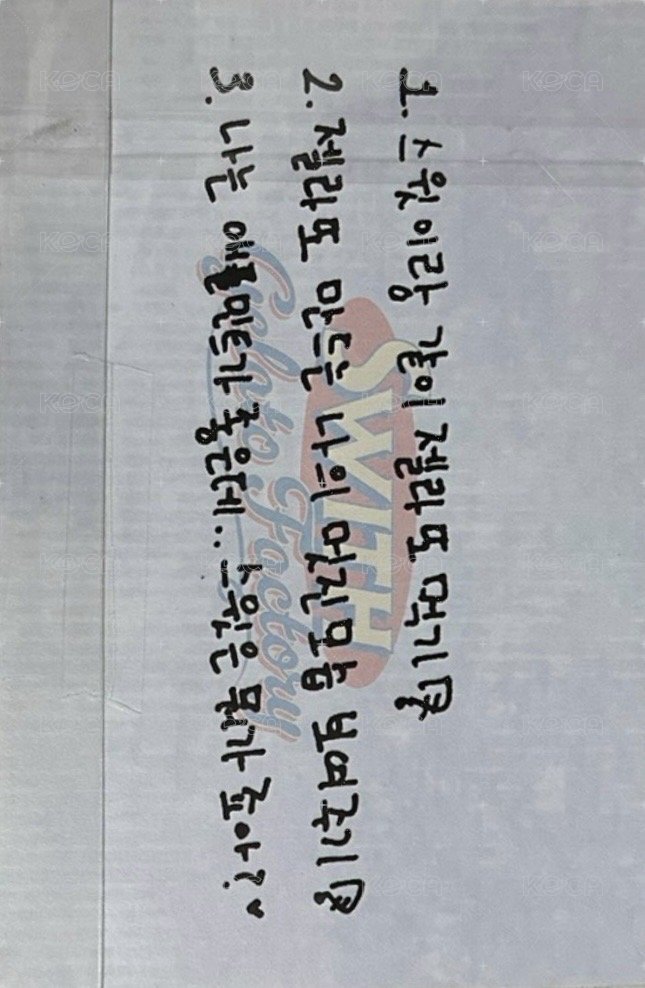 1. 스윗이랑 같이 젤라또 먹기♡
2. 젤라또 만드는 나의 멋진모습 보여주기♡
3. 나는 애플민트가 좋은데.. 스윗은 뭐가 좋아?♥
SWITH
Gelato Factory
KOCA